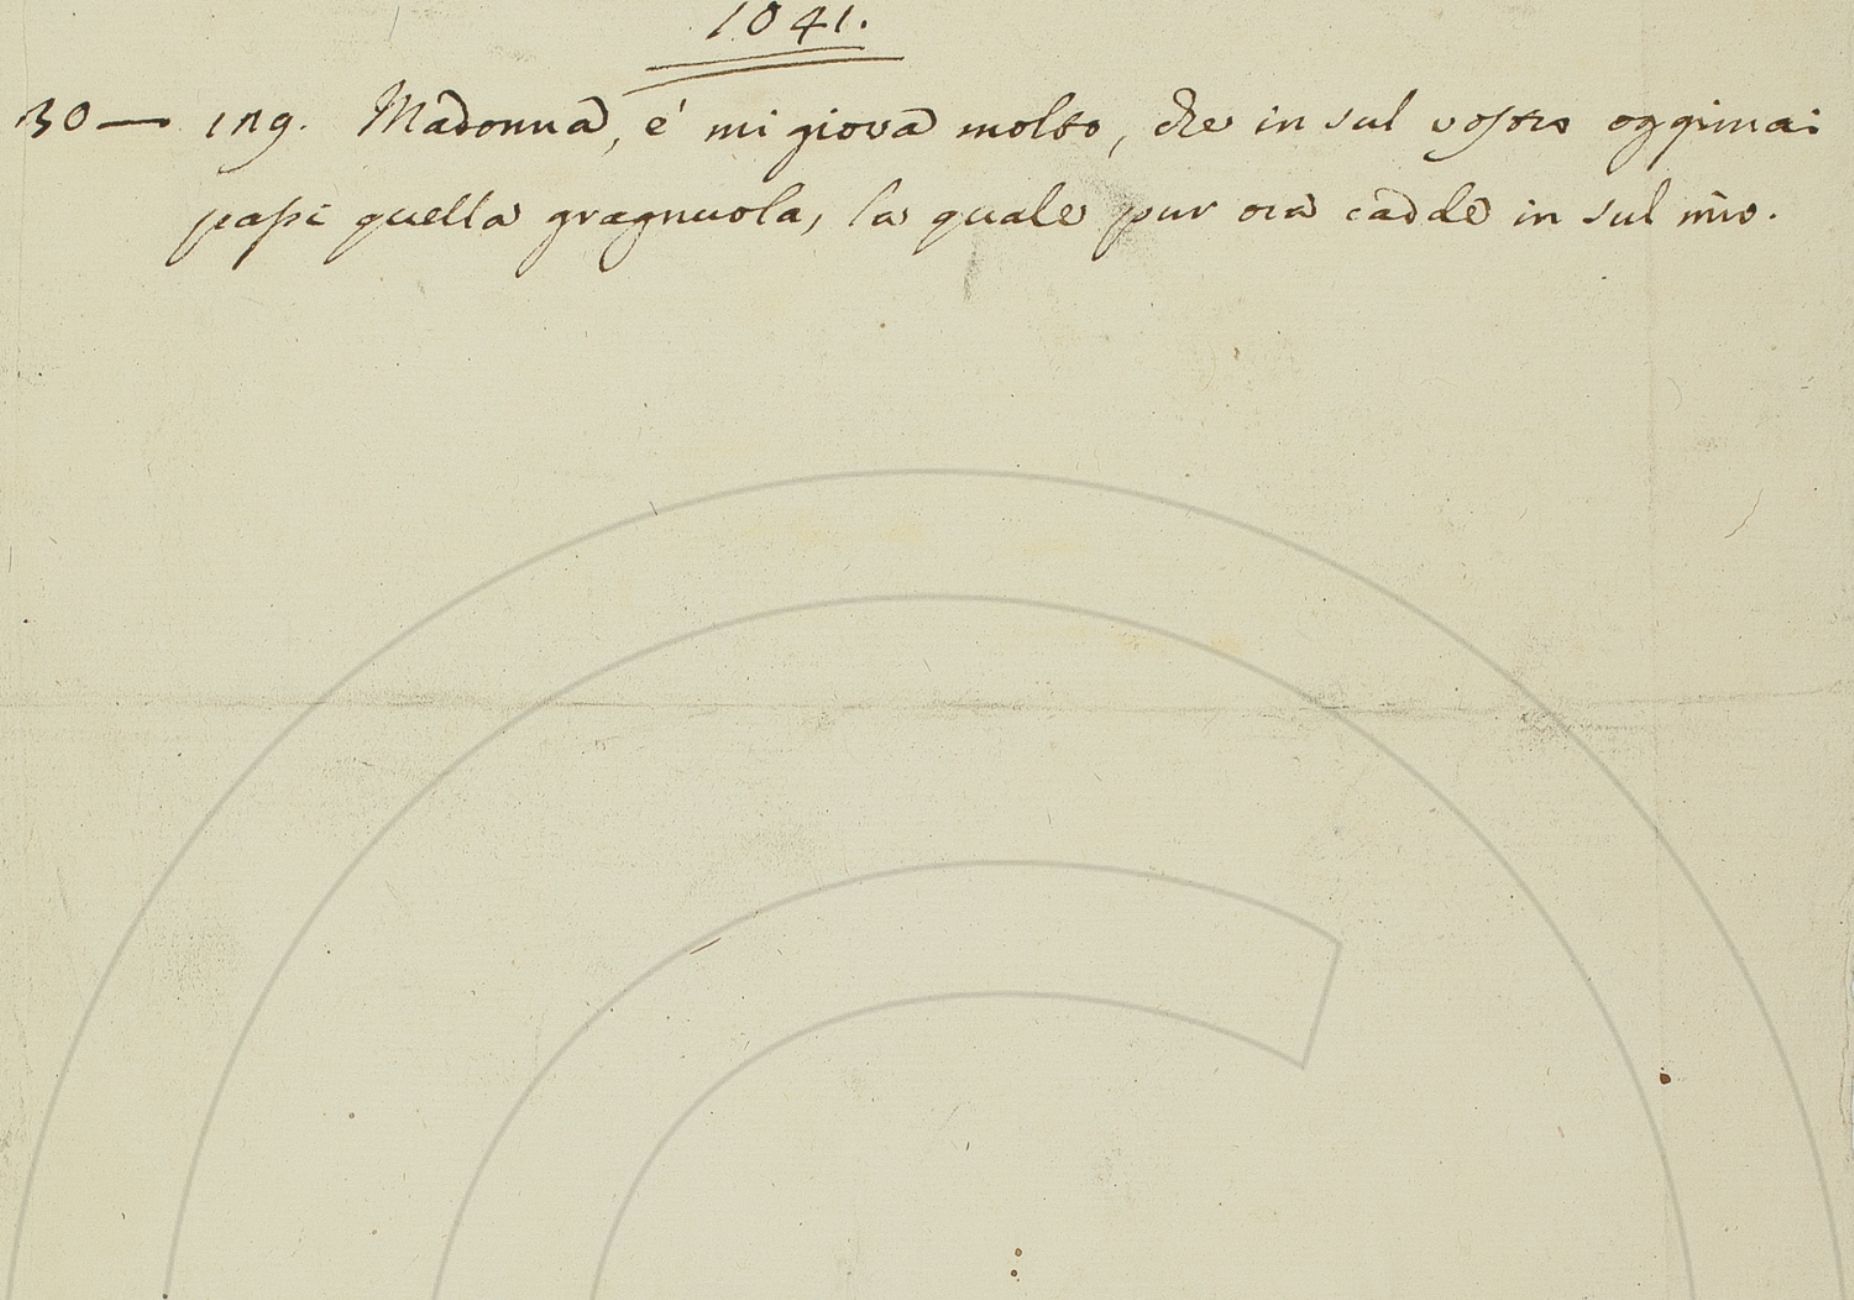 1041.
30 — ing. Madonna, e' mi giova molto, che in sul vostro oggimai
passi quella gragnuola, la quale pur ora cadde in sul mio.